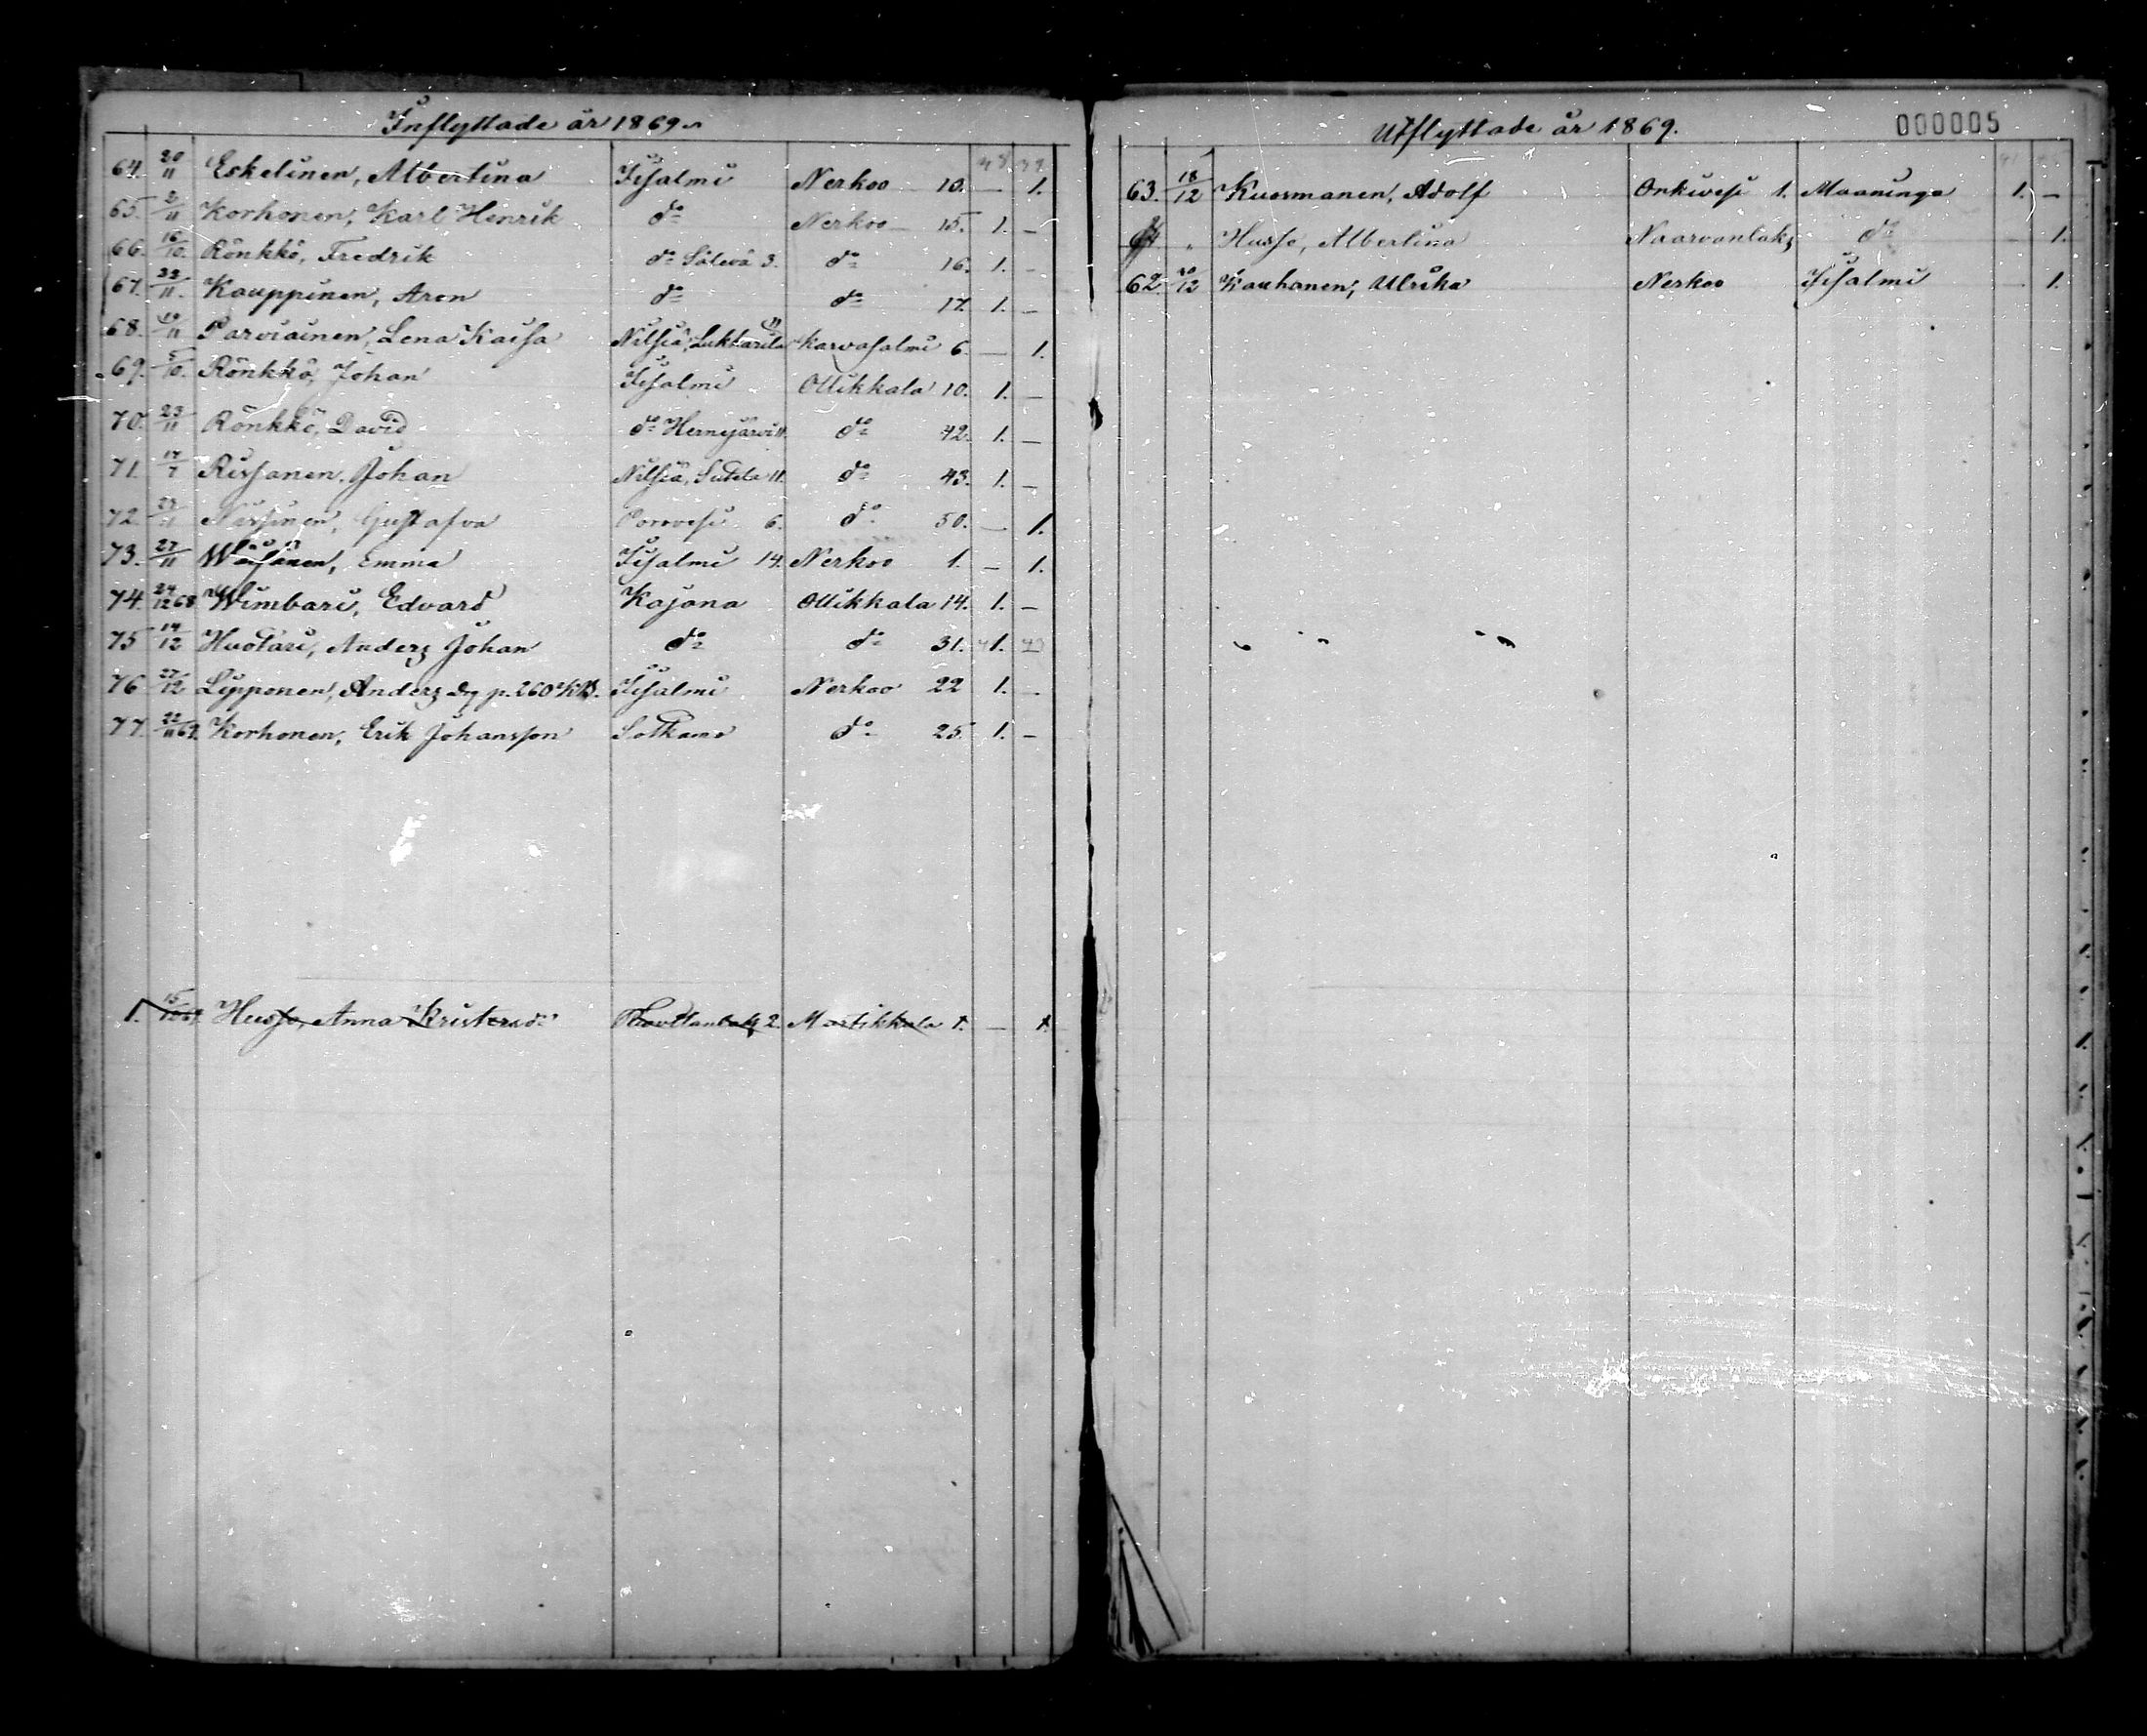 Inflyttade år 1869.
64. 20/11 Eskelinen, Albertina Iisalmi Nerkoo 10. — 1.
65. 2/11 Korhonen, Karl Henrik do Nerkoo 15. 1. —
66. 16/10. Rönkkö, Fredrik do Sälevä 3. do 16. 1. —
67. 22/11. Kauppinen, Aron do do 17. 1. —
68. 10/11 Parviainen, Lena Kaisa Nilsiä, Lukkarila Karvasalmi 6. — 1.
69. 5/10. Rönkkö, Johan Iisalmi Ollikkala 10. 1. —
70. 23/11 Rönkkö, David do Hernejärvi 11. do 42. 1. —
71. 17/7 Rissanen, Johan Nilsiä, Sutela 11. do 43. 1. —
72. Nissinen, Gustafva Porovesi 6. do 50. — 1.
73. 27/11 Wäisänen, Emma Iisalmi 14. Nerkoo 1. — 1.
74. 24/12 68 Wimbari, Edvard Kajana Ollikkala 14. 1. —
75 14/12 Huotari, Anders Johan do do 31. 1.
76 27/12 Lipponen, Anders p. 260 Iisalmi Nerkoo 22 1. —
77. 22/11 69. Korhonen, Erik Johansson Sotkamo do 25. 1. —
1. 15/10 69. Husso, Anna Kristersdr 2. Martikkala 1. — 1.
Utflyttade år 1869.
000005
63. 18/12 Kuosmanen, Adolf Onkivesi 1. Maaninga 1. —
64 " Husso, Albertina Naarvanlaks do — 1.
62. 20/12 Kauhanen, Ulrika Nerkoo Iisalmi — 1.